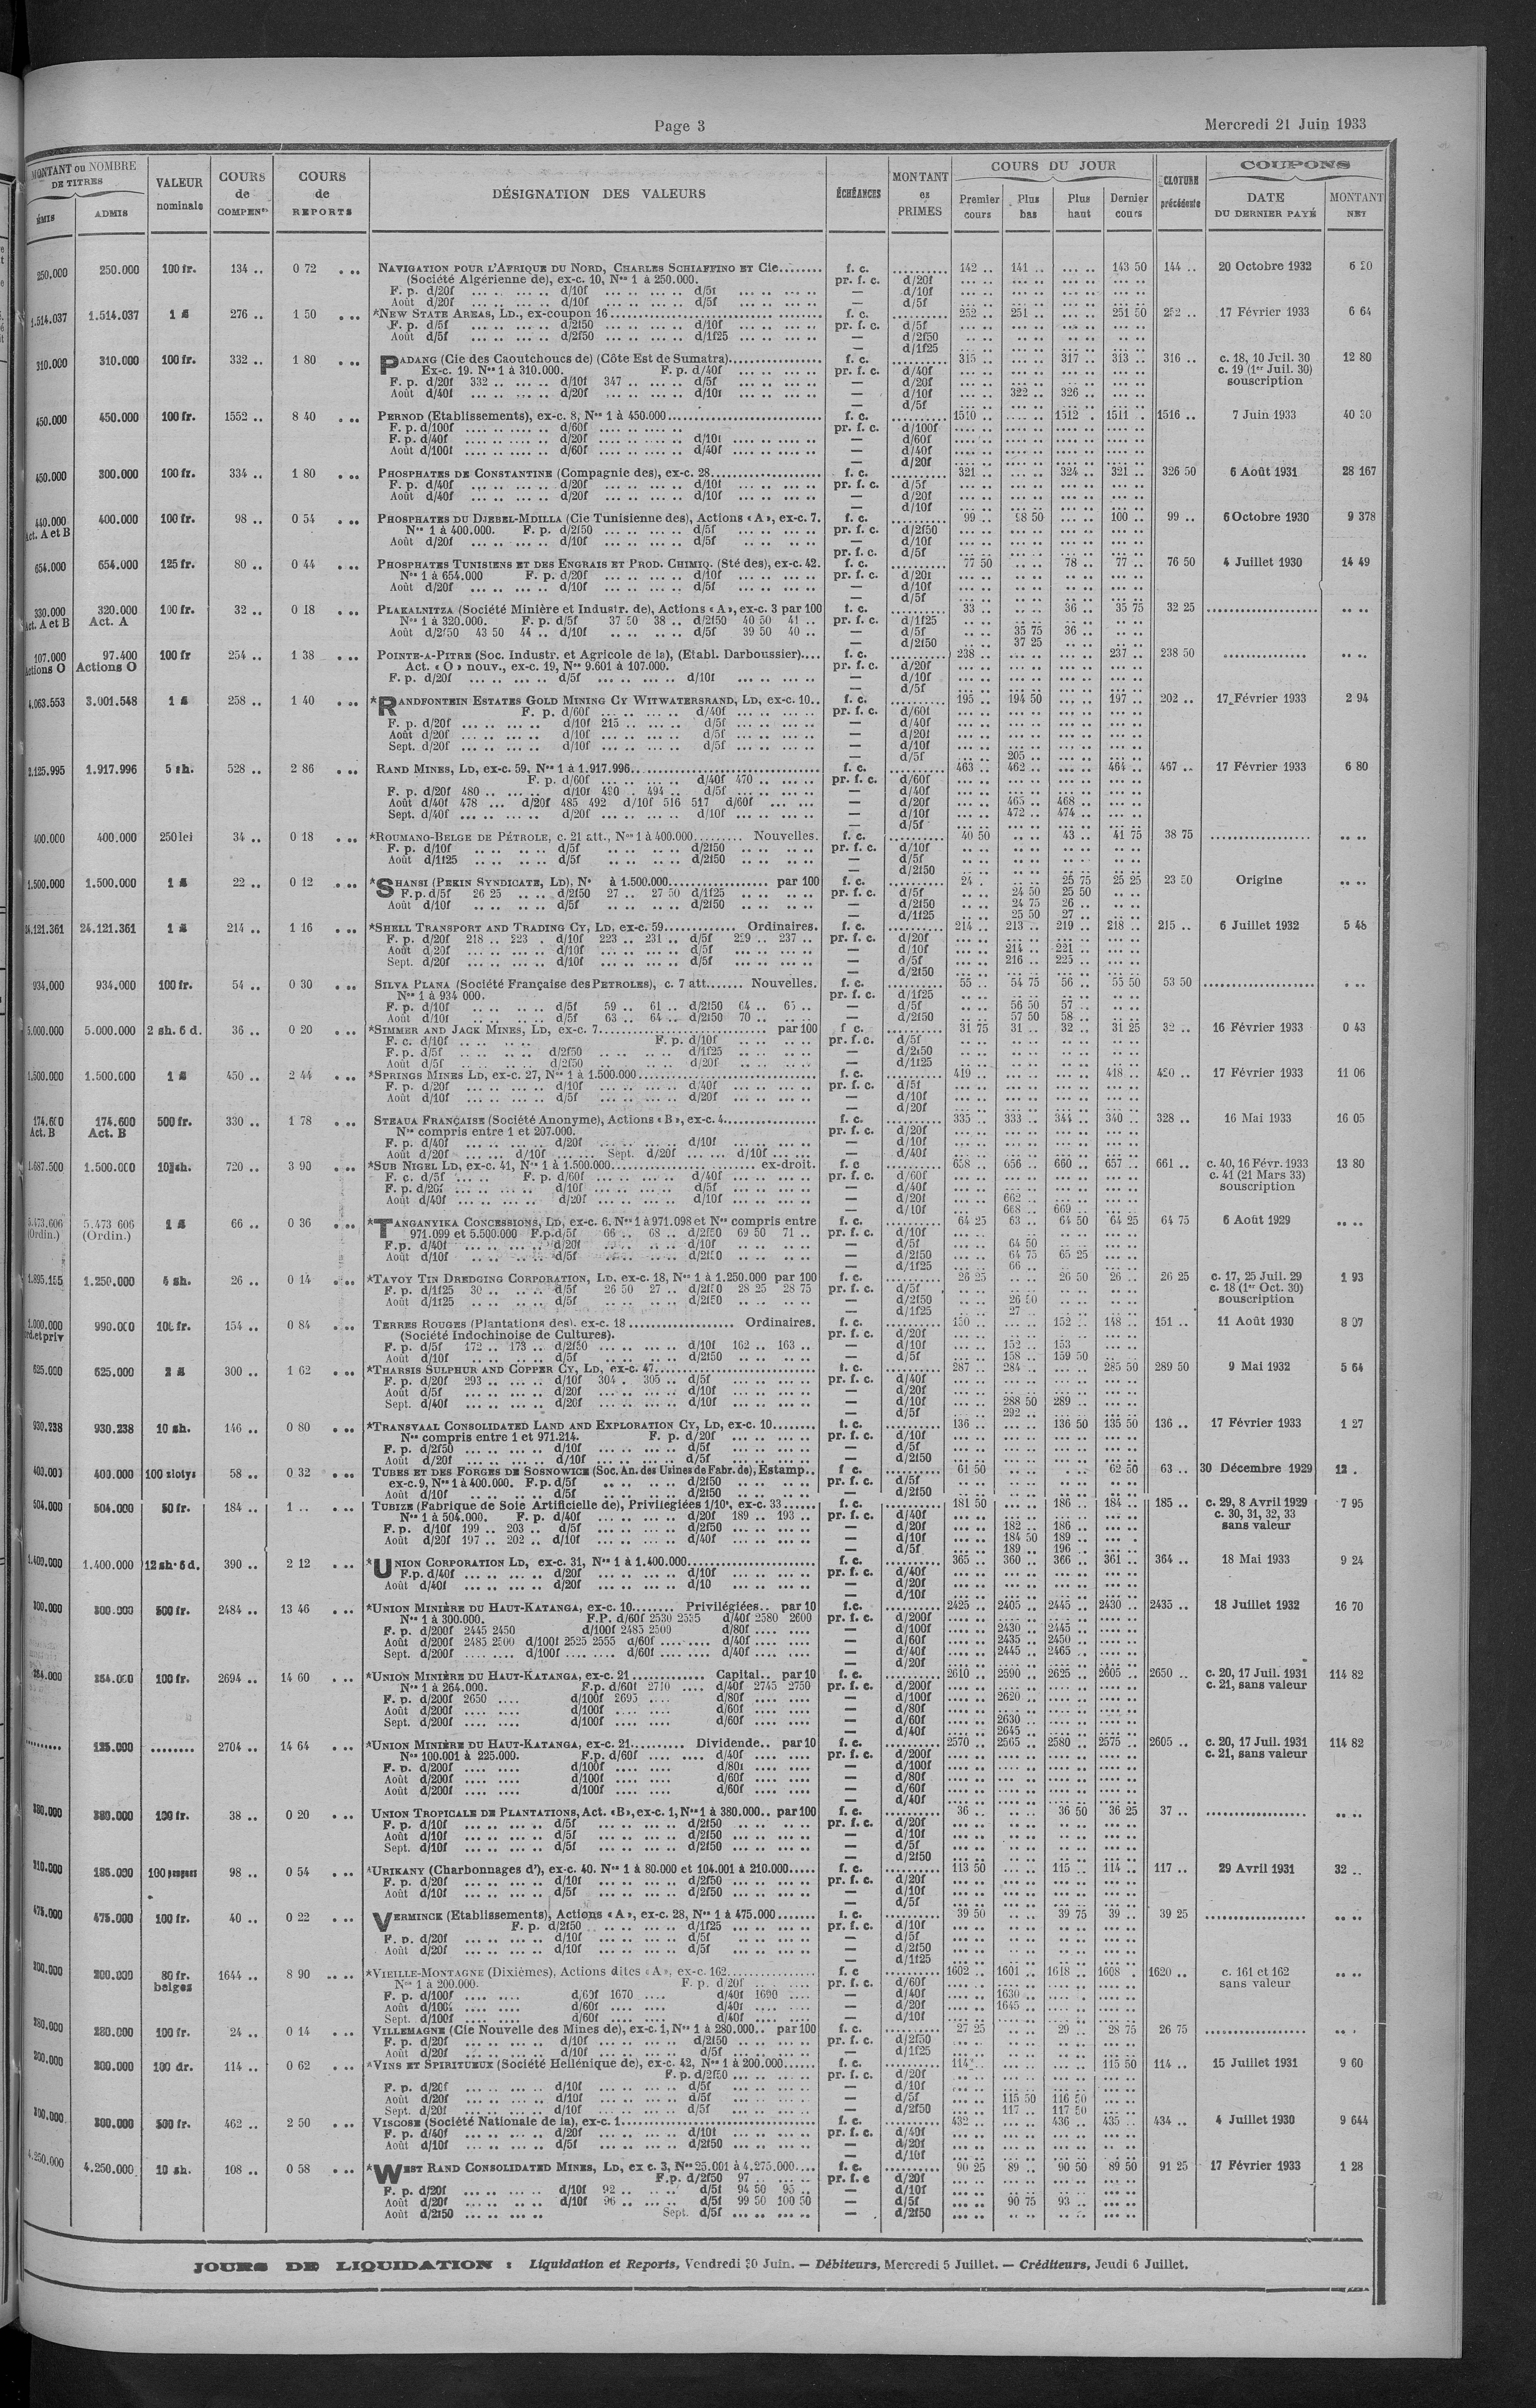 Page 3
Mercredi 21 Juin 1933
MONTANT ou NOMBRE DE TITRES
ÉMIS ADMIS
VALEUR nominale
COURS de COMPENS
COURS de REPORTS
DÉSIGNATION DES VALEURS
ÉCHÉANCES
MONTANT es PRIMES
COURS DU JOUR
Premier cours Plus bas Plus haut Dernier cours
CLOTURE précédente
COUPONS
DATE DU DERNIER PAYÉ
MONTANT NET
250.000 250.000 100 fr. 134 .. 0 72 NAVIGATION POUR L'AFRIQUE DU NORD, CHARLES SCHIAFFINO ET Cie........ f. c. 142 .. 141 .. ... .. 143 50 144 .. 20 Octobre 1932 6 20
(Société Algérienne de), ex-c. 10, Nos 1 à 250.000. pr. f. c. d/20f
F. p. d/20f d/10f d/5f — d/10f
Août d/20f d/10f d/5f — d/5f
1.514.037 1.514.037 1 £ 276 .. 1 50 *NEW STATE AREAS, LD., ex-coupon 16 f. c. 252 .. 251 .. ... .. 251 50 252 .. 17 Février 1933 6 64
F. p. d/5f d/2f50 d/10f pr. f. c. d/5f
Août d/5f d/2f50 d/1f25 — d/2f50
— d/1f25
310.000 310.000 100 fr. 332 .. 1 80 PADANG (Cie des Caoutchoucs de) (Côte Est de Sumatra) f. c. 315 .. ... .. 317 .. 313 .. 316 .. c. 18, 10 Juil. 30 12 80
Ex-c. 19. Nos 1 à 310.000. F. p. d/40f pr. f. c. d/40f c. 19 (1er Juil. 30)
F. p. d/20f 332 .. d/10f 347 .. d/5f — d/20f souscription
Août d/40f d/20f d/10f — d/10f 322 .. 326 ..
— d/5f
450.000 450.000 100 fr. 1552 .. 8 40 PERNOD (Etablissements), ex-c. 8, Nos 1 à 450.000 f. c. 1510 .. .... .. 1512 .. 1511 .. 1516 .. 7 Juin 1933 40 30
F. p. d/100f d/60f pr. f. c. d/100f
F. p. d/40f d/20f d/10f — d/60f
Août d/100f d/60f d/40f — d/40f
— d/20f
450.000 300.000 100 fr. 334 .. 1 80 PHOSPHATES DE CONSTANTINE (Compagnie des), ex-c. 28 f. c. 321 .. ... .. 324 .. 321 .. 326 50 6 Août 1931 28 167
F. p. d/40f d/20f d/10f pr. f. c. d/5f
Août d/40f d/20f d/10f — d/20f
— d/10f
440.000 400.000 100 fr. 98 .. 0 54 PHOSPHATES DU DJEBEL-MDILLA (Cie Tunisienne des), Actions « A », ex-c. 7. f. c. 99 .. 98 50 ... .. 100 .. 99 .. 6 Octobre 1930 9 378
Act. A et B Nos 1 à 400.000. F. p. d/2f50 d/5f pr. f. c. d/2f50
Août d/20f d/10f d/5f — d/10f
pr. f. c. d/5f
654.000 654.000 125 fr. 80 .. 0 44 PHOSPHATES TUNISIENS ET DES ENGRAIS ET PROD. CHIMIQ. (Sté des), ex-c. 42. f. c. 77 50 .. .. 78 .. 77 .. 76 50 4 Juillet 1930 14 49
Nos 1 à 654.000 F. p. d/20f d/10f d/5f pr. f. c. d/20f
Août d/20f d/10f d/5f — d/10f
— d/5f
330.000 320.000 100 fr. 32 .. 0 18 PLAKALNITZA (Société Minière et Industr. de), Actions « A », ex-c. 3 par 100 f. c. 33 .. .. .. 36 .. 35 75 32 25
Act. A et B Act. A Nos 1 à 320.000. F. p. d/5f 37 50 38 .. d/2f50 40 50 41 .. pr. f. c. d/1f25
Août d/2f50 43 50 44 .. d/10f d/5f 39 50 40 .. — d/5f 35 75 36 ..
— d/2f50 37 25
107.000 97.400 100 fr 254 .. 1 38 POINTE-A-PITRE (Soc. Industr. et Agricole de la), (Etabl. Darboussier).... f. c. 238 .. ... .. ... .. 237 .. 238 50
Actions O Actions O Act. « O » nouv., ex-c. 19, Nos 9.601 à 107.000. pr. f. c. d/20f
F. p. d/20f d/5f d/10f — d/10f
— d/5f
4.063.553 3.001.548 1 £ 258 .. 1 40 *RANDFONTEIN ESTATES GOLD MINING CY WITWATERSRAND, LD, ex-c. 10.. f. c. 195 .. 194 50 ... .. 197 .. 202 .. 17 Février 1933 2 94
F. p. d/60f d/40f pr. f. c. d/60f
F. p. d/20f d/10f 215 .. d/5f — d/40f
Août d/20f d/10f d/5f — d/20f
Sept. d/20f d/10f d/5f — d/10f
— d/5f 205 ..
2.125.995 1.917.996 5 sh. 528 .. 2 86 RAND MINES, LD, ex-c. 59. Nos 1 à 1.917.996 f. c. 463 .. 462 .. ... .. 464 .. 467 .. 17 Février 1933 6 80
F. p. d/60f d/40f 470 .. pr. f. c. d/60f
F. p. d/20f 480 .. d/10f 490 . 494 .. d/5f — d/40f
Août d/40f 478 ... d/20f 485 492 d/10f 516 517 d/60f — d/20f 465 .. 468 ..
Sept. d/40f d/20f d/10f — d/10f 472 .. 474 ..
— d/5f
400.000 400.000 250 lei 34 .. 0 18 *ROUMANO-BELGE DE PÉTROLE, c. 21 att., Nos 1 à 400.000 Nouvelles. f. c. 40 50 .. .. 43 .. 41 75 38 75
F. p. d/10f d/5f d/2f50 pr. f. c. d/10f
Août d/1f25 d/5f d/2f50 — d/5f
— d/2f50
1.500.000 1.500.000 1 £ 22 .. 0 12 *SHANSI (PEKIN SYNDICATE, LD), N° à 1.500.000 par 100 f. c. 24 . .. .. 25 75 25 25 23 50 Origine
F. p. d/5f 26 25 d/2f50 27 .. 27 50 d/1f25 pr. f. c. d/5f 24 50 25 50
Août d/10f d/5f d/2f50 — d/2f50 24 75 26 ..
— d/1f25 25 50 27 ..
24.121.361 24.121.361 1 £ 214 .. 1 16 *SHELL TRANSPORT AND TRADING CY, LD, ex-c. 59 Ordinaires. f. c. 214 .. 213 .. 219 .. 218 .. 215 .. 6 Juillet 1932 5 48
F. p. d/20f 218 .. 223 . d/10f 223 .. 231 .. d/5f 229 .. 237 .. pr. f. c. d/20f
Août d/20f d/10f d/5f — d/10f 214 .. 221 ..
Sept. d/20f d/10f d/5f — d/5f 216 .. 225 ..
— d/2f50
934.000 934.000 100 fr. 54 .. 0 30 SILVA PLANA (Société Française des PETROLES), c. 7 att. Nouvelles. f. c. 55 .. 54 75 56 .. 55 50 53 50
Nos 1 à 934 000. pr. f. c. d/1f25
F. p. d/10f d/5f 59 .. 61 .. d/2f50 64 .. 65 .. — d/5f 56 50 57 ..
Août d/10f d/5f 63 .. 64 .. d/2f50 70 .. — d/2f50 57 50 58 ..
5.000.000 5.000.000 2 sh. 6 d. 36 .. 0 20 *SIMMER AND JACK MINES, LD, ex-c. 7 par 100 f c. 31 75 31 .. 32 .. 31 25 32 .. 16 Février 1933 0 43
F. c. d/10f F. p. d/10f pr. f. c. d/5f
F. p. d/5f d/2f50 d/1f25 — d/2f50
Août d/5f d/2f50 d/20f — d/1f25
1.500.000 1.500.000 1 £ 450 .. 2 44 *SPRINGS MINES LD, ex-c. 27, Nos 1 à 1.500.000 f. c. 419 .. ... .. ... .. 418 .. 420 .. 17 Février 1933 11 06
F. p. d/20f d/10f d/40f pr. f. c. d/5f
Août d/10f d/5f d/20f — d/10f
— d/20f
174.600 174.600 500 fr. 330 .. 1 78 STEAUA FRANÇAISE (Société Anonyme), Actions « B », ex-c. 4 f. c. 335 .. 333 .. 344 .. 340 .. 328 .. 16 Mai 1933 16 05
Act. B Act. B Nos compris entre 1 et 207.000. pr. f. c. d/20f
F. p. d/40f d/20f d/10f — d/10f
Août d/20f d/10f Sept. d/20f d/10f — d/40f
1.687.500 1.500.000 10 sh. 720 .. 3 90 *SUB NIGEL LD, ex-c. 41, Nos 1 à 1.500.000 ex-droit. f. c 658 .. 656 .. 660 .. 657 .. 661 .. c. 40, 16 Févr. 1933 13 80
F. c. d/5f F. p. d/60f d/40f pr. f. c. d/60f c. 41 (21 Mars 33)
F. p. d/20f d/10f d/5f — d/40f souscription
Août d/40f d/20f d/10f — d/20f 662 ..
— d/10f 668 .. 669 ..
5.473.606 5.473 606 1 £ 66 .. 0 36 *TANGANYIKA CONCESSIONS, LD, ex-c. 6. Nos 1 à 971.098 et Nos compris entre f. c. 64 25 63 .. 64 50 64 25 64 75 6 Août 1929
(Ordin.) (Ordin.) 971.099 et 5.500.000 F.p.d/5f 66 .. 68 .. d/2f50 69 50 71 .. pr. f. c. d/10f
F.p. d/40f d/20f d/10f — d/5f 64 50
Août d/10f d/5f d/2f50 — d/2f50 64 75 65 25
— d/1f25 66 ..
1.895.155 1.250.000 4 sh. 26 .. 0 14 *TAVOY TIN DREDGING CORPORATION, LD, ex-c. 18, Nos 1 à 1.250.000 par 100 f. c. 26 25 .. .. 26 50 26 .. 26 25 c. 17, 25 Juil. 29 1 93
F. p. d/1f25 30 .. d/5f 26 50 27 .. d/2f50 28 25 28 75 pr. f. c. d/5f c. 18 (1er Oct. 30)
Août d/1f25 d/5f d/2f50 — d/2f50 26 50 souscription
— d/1f25 27 ..
1.000.000 990.000 100 fr. 154 .. 0 84 TERRES ROUGES (Plantations des), ex-c. 18 Ordinaires. f. c. 150 .. ... .. 152 .. 148 .. 151 .. 11 Août 1930 8 07
ord.et priv (Société Indochinoise de Cultures). pr. f. c. d/20f
F. p. d/5f 172 .. 173 .. d/2f50 d/10f 162 .. 163 .. — d/10f 152 .. 153
Août d/10f d/5f d/2f50 — d/5f 158 .. 159 50
625.000 625.000 2 £ 300 .. 1 62 *THARSIS SULPHUR AND COPPER CY, LD, ex-c. 47 f. c. 287 .. 284 .. ... .. 285 50 289 50 9 Mai 1932 5 64
F. p. d/20f 293 .. d/10f 304 . 305 .. d/5f pr. f. c. d/40f
Août d/5f d/20f d/10f — d/20f
Sept. d/40f d/20f d/10f — d/10f 288 50 289 ..
— d/5f 292 ..
930.238 930.238 10 sh. 146 .. 0 80 *TRANSVAAL CONSOLIDATED LAND AND EXPLORATION CY, LD, ex-c. 10 f. c. 136 .. ... .. 136 50 135 50 136 .. 17 Février 1933 1 27
Nos compris entre 1 et 971.214. F. p. d/20f pr. f. c. d/10f
F. p. d/2f50 d/10f d/5f — d/5f
Août d/20f d/10f d/5f — d/2f50
400.000 400.000 100 zlotys 58 .. 0 32 TUBES ET DES FORGES DE SOSNOWICE (Soc. An. des Usines de Fabr. de), Estamp.. f c. 61 50 .. .. .. .. 62 50 63 .. 30 Décembre 1929 12 .
ex-c. 9, Nos 1 à 400.000. F. p. d/5f d/2f50 pr. f. c. d/5f
Août d/10f d/5f d/2f50 — d/2f50
504.000 504.000 50 fr. 184 .. 1 .. TUBIZE (Fabrique de Soie Artificielle de), Privilégiées 1/10e, ex-c. 33 f. c. 181 50 ... .. 186 .. 184 .. 185 .. c. 29, 8 Avril 1929 7 95
Nos 1 à 504.000. F. p. d/40f d/20f 189 .. 193 .. pr. f. c. d/40f c. 30, 31, 32, 33
F. p. d/10f 199 .. 203 .. d/5f d/2f50 — d/20f 182 .. 186 .. sans valeur
Août d/20f 197 .. 202 .. d/10f d/40f — d/10f 184 50 189 ..
— d/5f 189 .. 196 ..
1.400.000 1.400.000 12 sh. 6 d. 390 .. 2 12 *UNION CORPORATION LD, ex-c. 31, Nos 1 à 1.400.000 f. c. 365 .. 360 .. 366 .. 361 .. 364 .. 18 Mai 1933 9 24
F.p. d/40f d/20f d/10f pr. f. c. d/40f
Août d/40f d/20f d/10 — d/20f
— d/10f
300.000 300.000 500 fr. 2484 .. 13 46 *UNION MINIÈRE DU HAUT-KATANGA, ex-c. 10 Privilégiées.. par 10 f.c. 2425 .. 2405 .. 2445 .. 2430 .. 2435 .. 18 Juillet 1932 16 70
Nos 1 à 300.000. F.P. d/60f 2530 2535 d/40f 2580 2600 pr. f. c. d/200f
F. p. d/200f 2445 2450 d/100f 2485 2500 d/80f — d/100f 2430 .. 2445 ..
Août d/200f 2485 2500 d/100f 2525 2555 d/60f d/40f — d/60f 2435 .. 2450 ..
Sept. d/200f d/100f d/60f d/40f — d/40f 2445 .. 2465 ..
— d/20f
264.000 264.000 100 fr. 2694 .. 14 60 *UNION MINIÈRE DU HAUT-KATANGA, ex-c. 21 Capital.. par 10 f. c. 2610 .. 2590 .. 2625 .. 2605 .. 2650 .. c. 20, 17 Juil. 1931 114 82
Nos 1 à 264.000. F.p. d/60f 2710 .... d/40f 2745 2750 pr. f. c. d/200f c. 21, sans valeur
F. p. d/200f 2650 .... d/100f 2695 .... d/80f — d/100f 2620 ..
Août d/200f d/100f d/60f — d/80f
Sept. d/200f d/100f d/60f — d/60f 2630 ..
— d/40f 2645 ..
125.000 2704 .. 14 64 *UNION MINIÈRE DU HAUT-KATANGA, ex-c. 21 Dividende.. par 10 f. c. 2570 .. 2565 .. 2580 .. 2575 .. 2605 .. c. 20, 17 Juil. 1931 114 82
Nos 100.001 à 225.000. F.p. d/60f d/40f pr. f. c. d/200f c. 21, sans valeur
F. p. d/200f d/100f d/80f — d/100f
Août d/200f d/100f d/60f — d/80f
Août d/200f d/100f d/60f — d/60f
— d/40f
380.000 380.000 100 fr. 38 .. 0 20 UNION TROPICALE DE PLANTATIONS, Act. «B», ex-c. 1, Nos 1 à 380.000.. par 100 f. c. 36 .. .. .. 36 50 36 25 37 ..
F. p. d/10f d/5f d/2f50 pr. f. c. d/20f
Août d/10f d/5f d/2f50 — d/10f
Sept. d/10f d/5f d/2f50 — d/5f
— d/2f50
210.000 186.000 100 pengoes 98 .. 0 54 *URIKANY (Charbonnages d'), ex-c. 40. Nos 1 à 80.000 et 104.001 à 210.000 f. c. 113 50 ... .. 115 .. 114 .. 117 .. 29 Avril 1931 32 ..
F. p. d/20f d/10f d/2f50 pr. f. c. d/20f
Août d/10f d/5f d/2f50 — d/10f
— d/5f
475.000 475.000 100 fr. 40 .. 0 22 VERMINCK (Etablissements), Actions « A », ex-c. 28, Nos 1 à 475.000 f. c. 39 50 .. .. 39 75 39 .. 39 25
F. p. d/2f50 d/1f25 pr. f. c. d/10f
F. p. d/20f d/10f d/5f — d/5f
Août d/20f d/10f d/5f — d/2f50
— d/1f25
200.000 200.000 80 fr. belges 1644 .. 8 90 *VIEILLE-MONTAGNE (Dixièmes), Actions dites « A », ex-c. 162 f. c 1602 .. 1601 .. 1618 .. 1608 . 1620 .. c. 161 et 162
Nos 1 à 200.000. F. p. d/20f pr. f. c. d/60f sans valeur
F. p. d/100f d/60f 1670 .... d/40f 1690 .... — d/40f 1630 ..
Août d/100f d/60f d/40f — d/20f 1645 ..
Sept. d/100f d/60f d/40f — d/10f
280.000 280.000 100 fr. 24 .. 0 14 VILLEMAGNE (Cie Nouvelle des Mines de), ex-c. 1, Nos 1 à 280.000.. par 100 f. c. 27 25 .. .. 29 .. 28 75 26 75
F. p. d/20f d/10f d/2f50 pr. f. c. d/2f50
Août d/20f d/10f d/5f — d/1f25
200.000 200.000 100 dr. 114 .. 0 62 *VINS ET SPIRITUEUX (Société Hellénique de), ex-c. 42, Nos 1 à 200.000 f. c. 114 .. ... .. ... .. 115 50 114 .. 15 Juillet 1931 9 60
F. p. d/2f50 pr. f. c. d/20f
F. p. d/20f d/10f d/5f — d/10f
Août d/20f d/10f d/5f — d/5f 115 50 116 50
Sept. d/20f d/10f d/5f — d/2f50 117 .. 117 50
300.000 300.000 500 fr. 462 .. 2 50 VISCOSE (Société Nationale de la), ex-c. 1 f. c. 432 .. ... .. 436 .. 435 .. 434 .. 4 Juillet 1930 9 644
F. p. d/40f d/20f d/10f pr. f. c. d/40f
Août d/10f d/5f d/2f50 — d/20f
— d/10f
4.250.000 4.250.000 10 sh. 108 .. 0 58 *WEST RAND CONSOLIDATED MINES, LD, ex c. 3, Nos 25.001 à 4.275.000 f. c. 90 25 89 .. 90 50 89 50 91 25 17 Février 1933 1 28
F.p. d/2f50 97 .. pr. f. c d/20f
F. p. d/20f d/10f 92 .. d/5f 94 50 95 .. — d/10f
Août d/20f d/10f 96 .. d/5f 99 50 100 50 — d/5f 90 75 93 ..
Août d/2f50 Sept. d/5f — d/2f50
JOURS DE LIQUIDATION : Liquidation et Reports, Vendredi 30 Juin. — Débiteurs, Mercredi 5 Juillet. — Créditeurs, Jeudi 6 Juillet.